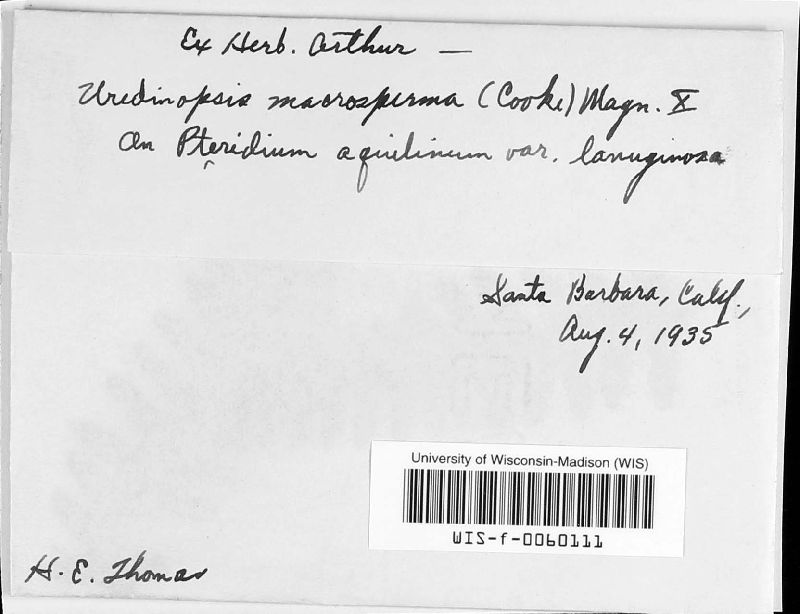 Ex Herb. Arthur —
Uredinopsis macrosperma (Cooke) Magn. X
On Pteridium aquilinum var. lanuginosa
Santa Barbara, Calif.,
Aug. 4, 1935
University of Wisconsin-Madison (WIS)
WIS-f-0060111
H. E. Thomas